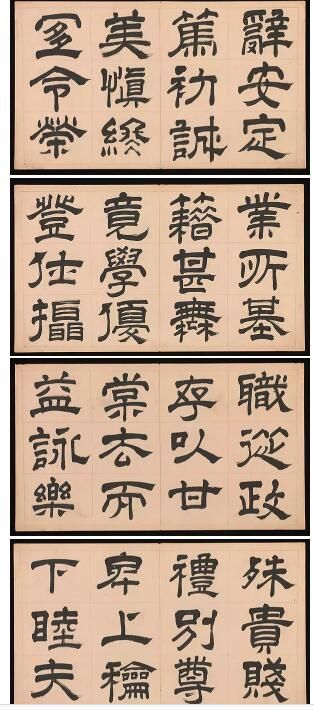 辭安定
篤初誠
美慎終
宜令榮
業所基
籍甚無
竟學優
登仕攝
職從政
存以甘
棠去而
益詠樂
殊貴賤
禮別尊
卑上龢
下睦夫